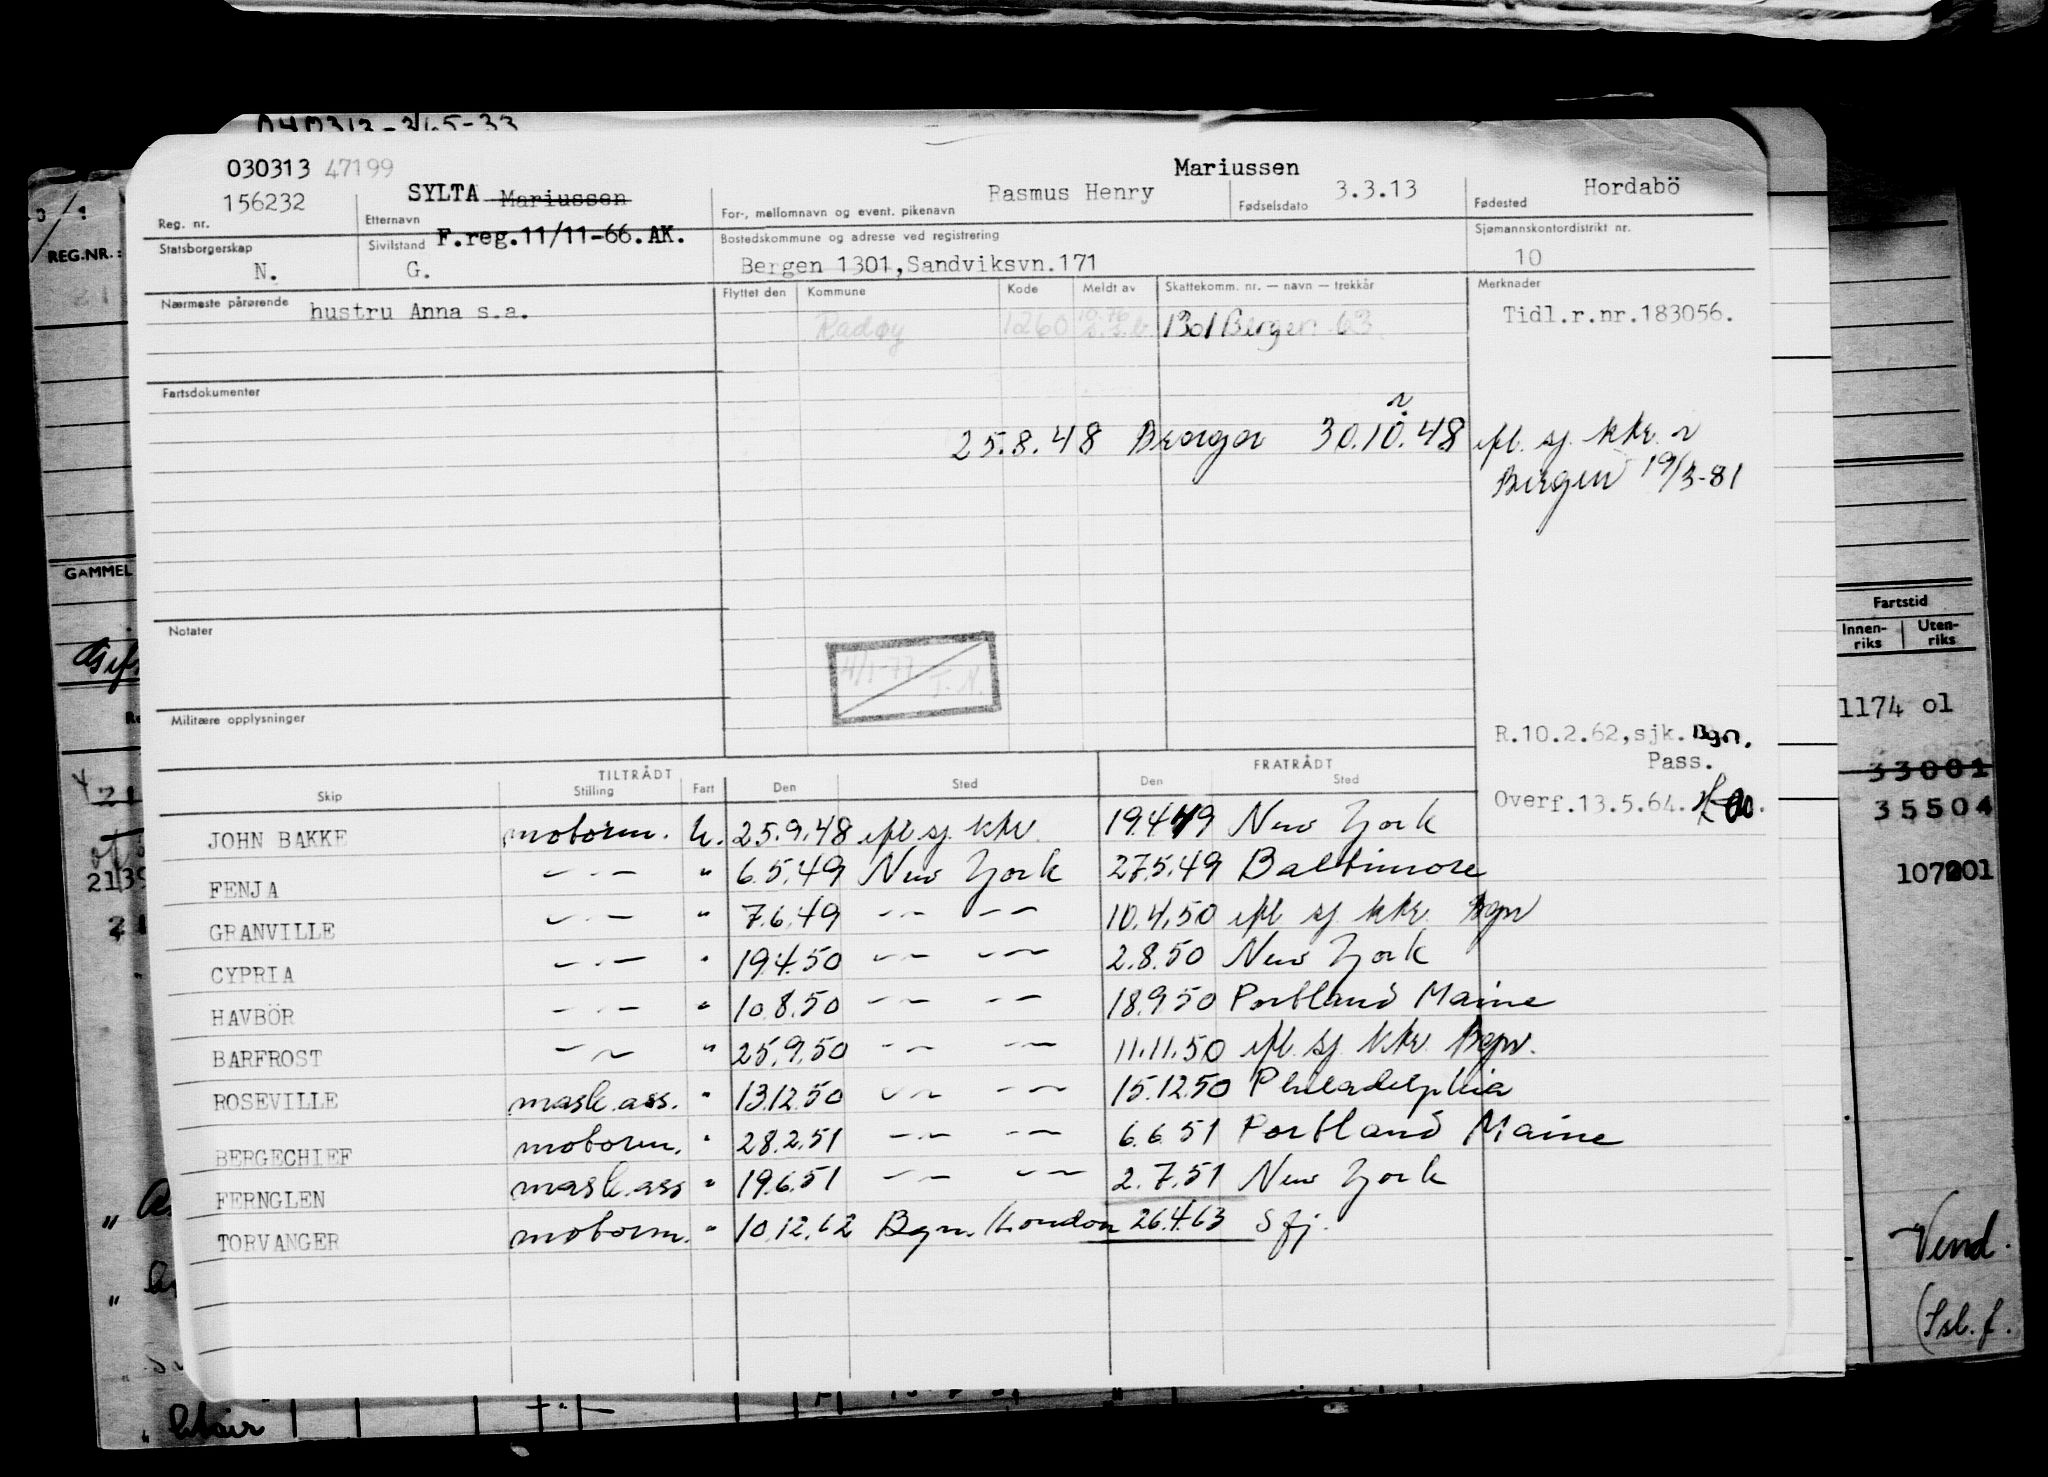 040313-365-33
030313 47199
Mariussen
156232 SYLTA Mariussen Rasmus Henry 3.3.13 Hordabö
Reg. nr. Etternavn For-, mellomnavn og event. pikenavn Fødselsdato Fødested
F.reg.11/11-66.AK.
Statsborgerskap Sivilstand Bostedskommune og adresse ved registrering Sjømannskontordistrikt nr.
N. G. Bergen 1301,Sandviksvn.171 10
Nærmeste pårørende Flyttet den Kommune Kode Meldt av Skattekomm. nr. — navn — trekkår Merknader
hustru Anna s.a. Radøy 1260 1301 Bergen 63 Tidl.r.nr.183056.
Fartsdokumenter
25.8.48 Bergen 30.10.48 efl. sj. kkr. n
Bergen 19/3-81
Notater
4/1-77 T.N.
Militære opplysninger
R.10.2.62,sjk. Bgn.
Pass.
Overf.13.5.64.
TILTRÅDT FRATRÅDT
Skip Stilling Fart Den Sted Den Sted
JOHN BAKKE motorm. U. 25.9.48 efl. sj. kkr. 19.4.49 New York
FENJA — " — " 6.5.49 New York 27.5.49 Baltimore
GRANVILLE — " — " 7.6.49 — " — — " — 10.4.50 efl. sj. kkr. Bgn
CYPRIA — " — " 19.4.50 — " — — " — 2.8.50 New York
HAVBÖR — " — " 10.8.50 — " — — " — 18.9.50 Portland Maine
BARFROST — " — " 25.9.50 — " — — " — 11.11.50 efl. sj. kkr. Bgn.
ROSEVILLE mask.ass. " 13.12.50 — " — — " — 15.12.50 Philadelphia
BERGECHIEF motorm. " 28.2.51 — " — — " — 6.6.51 Portland Maine
FERNGLEN mask.ass " 19.6.51 — " — — " — 2.7.51 New York
TORVANGER motorm. " 10.12.62 Bgn./London 26.4.63 Sfj.
REG.NR.:
GAMMEL
Gift
Fartstid
Innen-
riks
Uten-
riks
1174 ol
33001
35504
107201
Vend.
(Ssl. f.